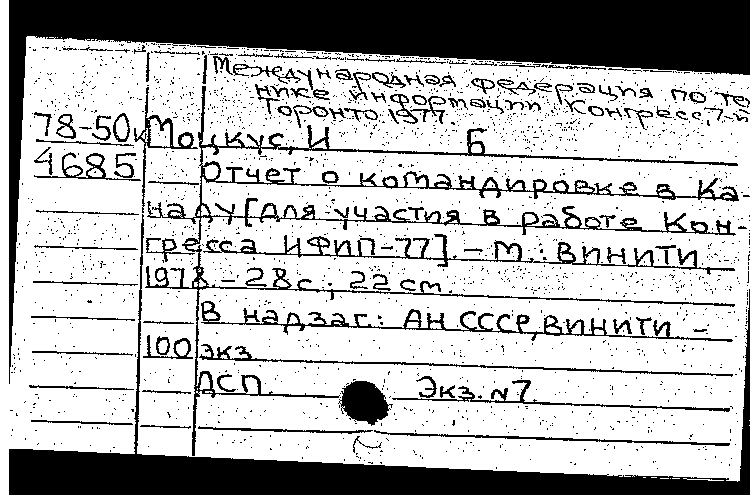 Международная федерация по те
нике информации. Конгресс, 7-й
Торонто. 1977.
78-50к Моцкус, И Б
4685 Отчет о командировке в Ка-
наду [для участия в работе Кон-
гресса ИФИП-77]. – М.: ВИНИТИ,
1978 – 28 с.; 22 см.
В надзаг.: АН СССР, ВИНИТИ –
100 экз
ДСП. Экз. № 7.